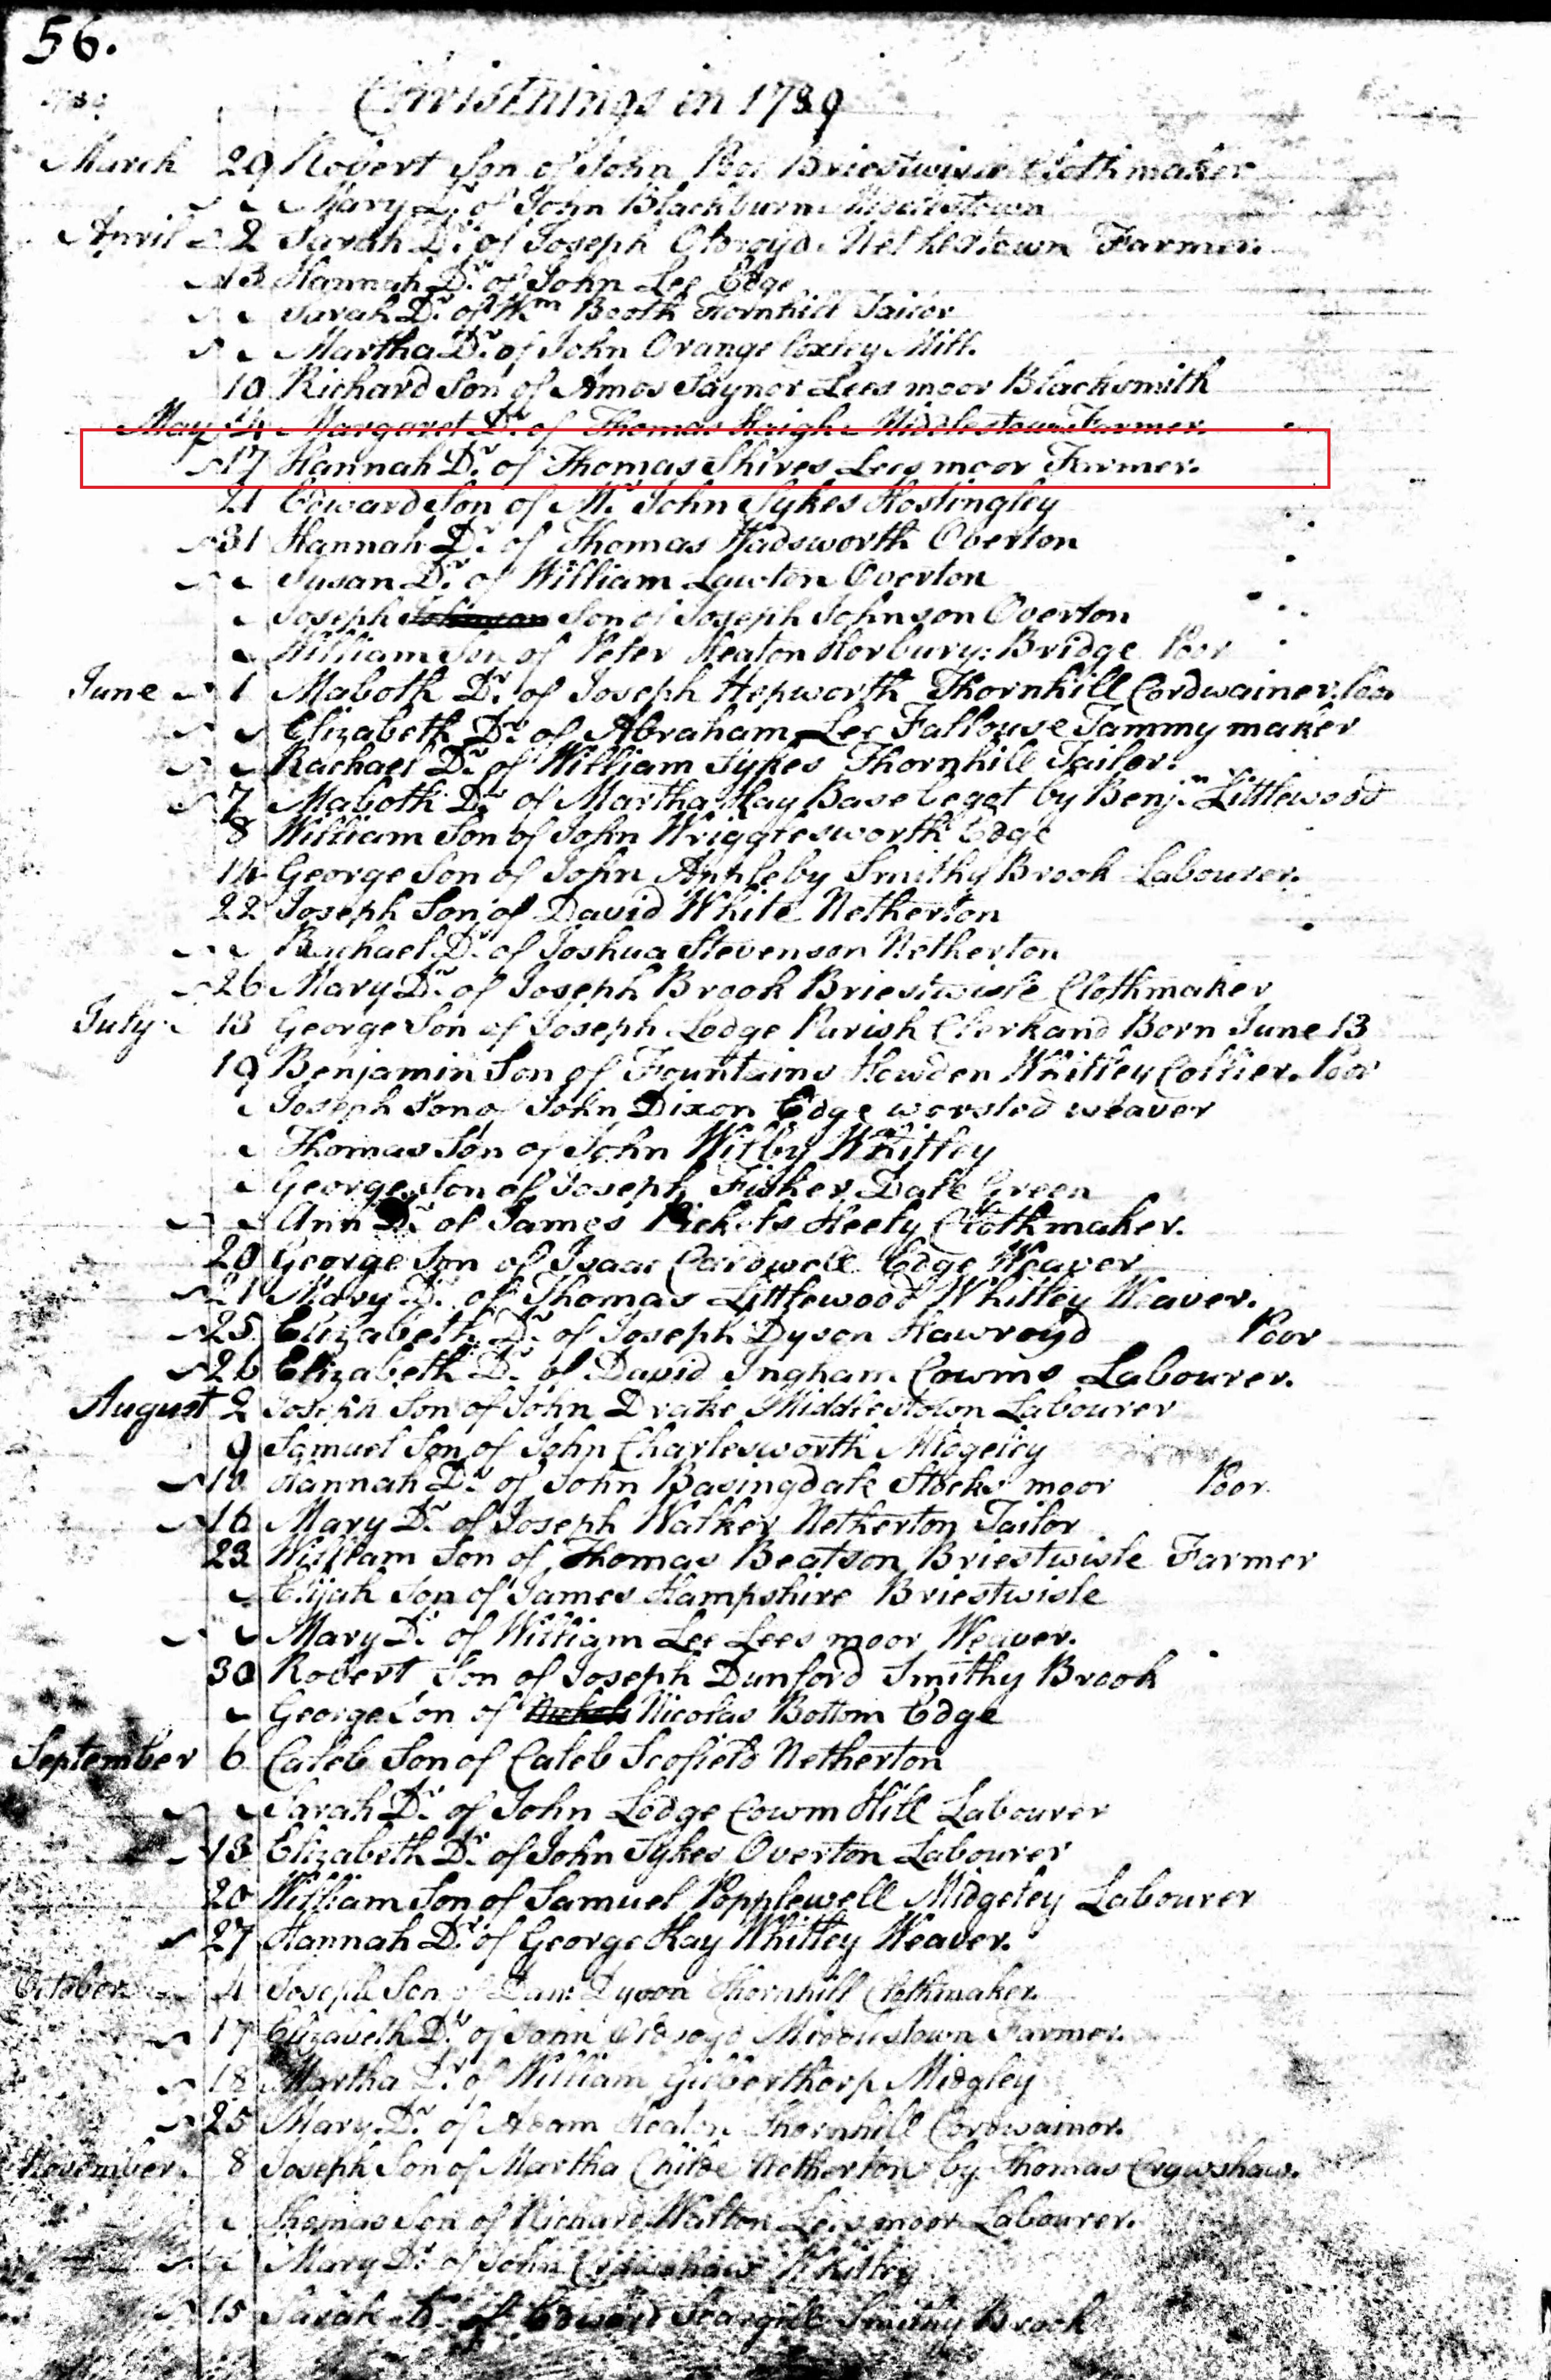 56.
Christnings in 1789
March 29 Robert Son of John Briestwisle Clothmaker
Mary Dr. of John Blackburn Middlestown
April 2 Sarah Dr. of Joseph Oldroyd Netherstown Farmer.
13 Hannah Dr. of John Lee Edge
Sarah Dr. of Wm Booth Thornhill Tailor
Martha Dr. of John Orange Coxley Mill.
10 Richard Son of Amos Saynor Lees moor Blacksmith
May Margaret Dr. of Thomas Haigh Middlestown Farmer.
17 Hannah Dr. of Thomas Shires Lees moor Farmer.
21 Edward Son of Mr. John Sykes Hostingley
31 Hannah Dr. of Thomas Wadsworth Overton
Susan Dr. of William Lawton Overton
Joseph Son of Joseph Johnson Overton
William Son of Peter Heaton Horbury Bridge Poor
June 1 Maboth Dr. of Joseph Hepworth Thornhill Cordwainer. Poor
Elizabeth Dr. of Abraham Lee Fallouse Tammy maker
Rachael Dr. of William Sykes Thornhill Tailor.
7 Maboth Dr. of Martha Hay Base begot by Benjn Littlewood
8 William Son of John Wrigglesworth Edge
14 George Son of John Appleby Smithy Brook Labourer.
22 Joseph Son of David White Netherton
Rachael Dr. of Joshua Stevenson Netherton
26 Mary Dr. of Joseph Brook Briestwisle Clothmaker
July 13 George Son of Joseph Lodge Parish Clerk and Born June 13
19 Benjamin Son of Fountains Howden Whitley Collier. Poor
Joseph Son of John Dixon Edge worsted weaver
Thomas Son of John Wilby Whitley
George Son of Joseph Fisher Dale Green
Ann Dr. of James Pickels Heely Clothmaker.
20 George Son of Isaac Cardwell Edge Weaver
21 Mary Dr. of Thomas Littlewood Whitley Weaver.
25 Elizabeth Dr. of Joseph Dyson Hawroyd Poor
26 Elizabeth Dr. of David Ingham Cowms Labourer.
August 2 Joseph Son of John Drake Middlestown Labourer
9 Samuel Son of John Charlesworth Midgeley
10 Hannah Dr. of John Basingdale Stocks moor Poor.
16 Mary Dr. of Joseph Walker Netherton Tailor
23 William Son of Thomas Beatson Briestwisle Farmer
Elijah Son of James Hampshire Briestwisle
Mary Dr. of William Lee Lees moor Weaver.
30 Robert Son of Joseph Dunford Smithy Brook
George Son of Nicolas Bottom Edge
September 6 Caleb Son of Caleb Scofield Netherton
Sarah Dr. of John Lodge Cowm Hill Labourer
13 Elizabeth Dr. of John Sykes Overton Labourer
20 William Son of Samuel Popplewell Midgeley Labourer
27 Hannah Dr. of George Hay Whitley Weaver.
October 4 Joseph Son of Dyson Thornhill Clothmaker
17 Elizabeth Dr. of John Oldroyd Middlestown Farmer.
18 Martha Dr. of William Gilberthorp Midgley
25 Mary Dr. of Adam Heaton Thornhill Cordwainor.
November 8 Joseph Son of Martha Childe Netherton by Thomas Crawshaw.
Thomas Son of Richard Walton Lees moor Labourer.
Mary Dr. of John Crawshaw Whitley
15 Sarah Dr. of Edward Scargill Smithy Brook